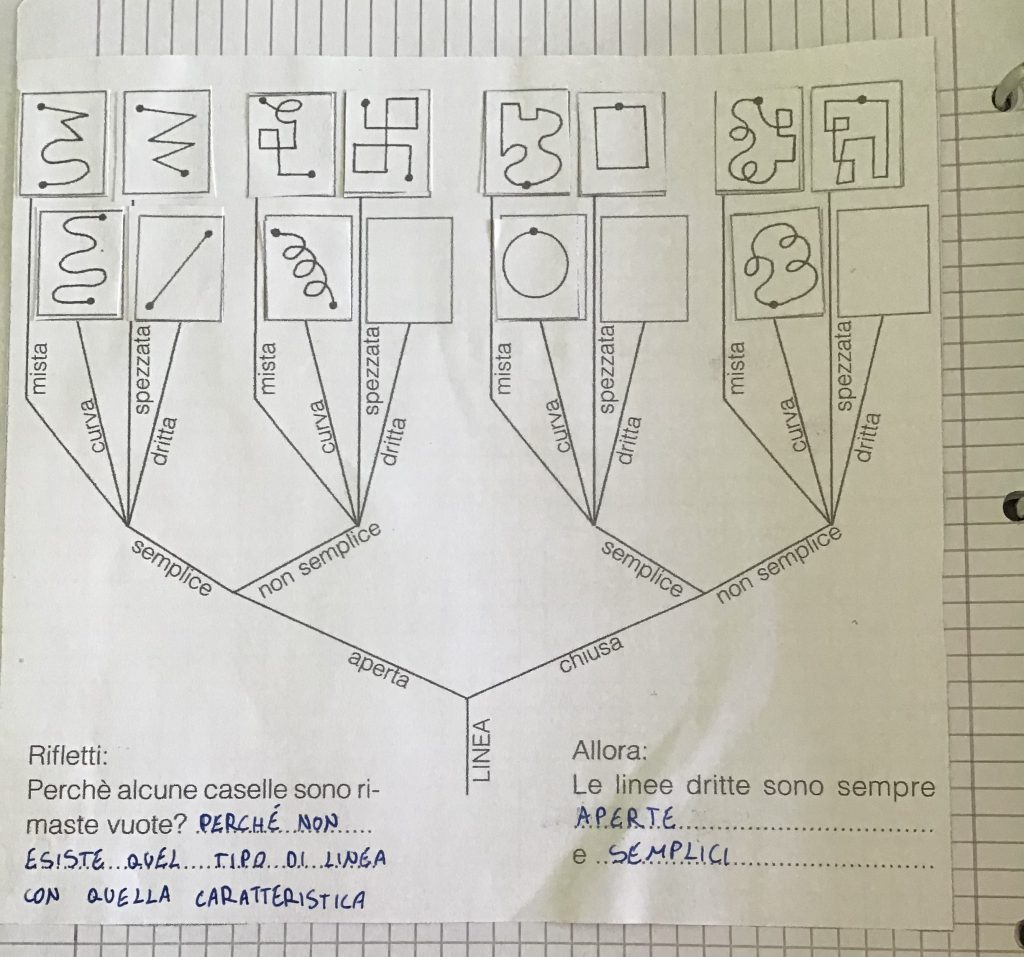 mista
curva
spezzata
dritta
mista
curva
spezzata
dritta
mista
curva
spezzata
dritta
mista
curva
spezzata
dritta
semplice
non semplice
semplice
non semplice
aperta
chiusa
LINEA
Rifletti:
Perchè alcune caselle sono ri-
maste vuote? PERCHÉ NON
ESISTE QUEL TIPO DI LINEA
CON QUELLA CARATTERISTICA
Allora:
Le linee dritte sono sempre
APERTE
e SEMPLICI